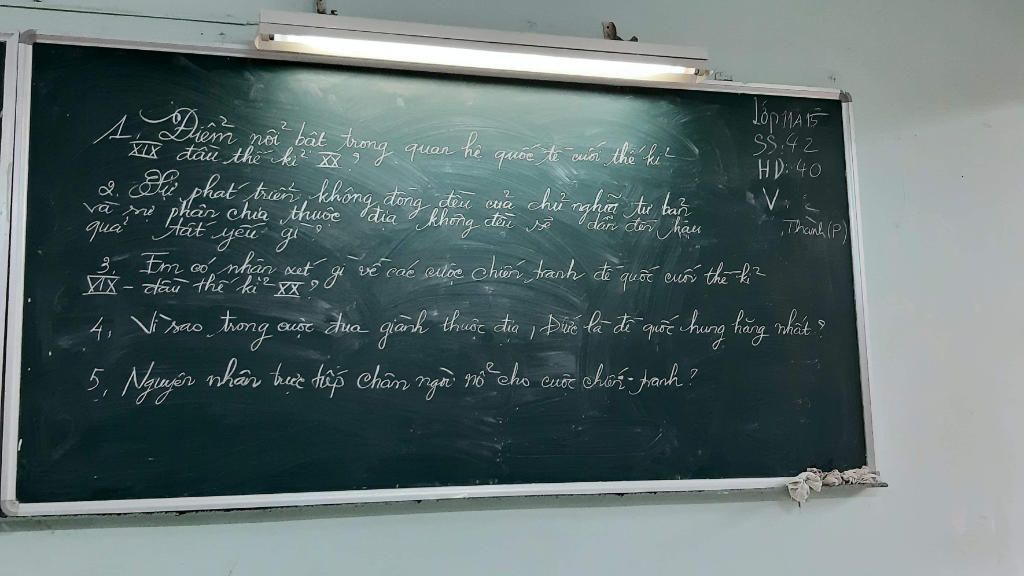 1, Điểm nổi bật trong quan hệ quốc tế cuối thế kỉ
XIX đầu thế kỉ XX?
2. Sự phát triển không đồng đều của chủ nghĩa tư bản
và sự phân chia thuộc địa không đều sẽ dẫn đến hậu
quả tất yếu gì?
3, Em có nhận xét gì về các cuộc chiến tranh đế quốc cuối thế kỉ
XIX - đầu thế kỉ XX?
4, Vì sao, trong cuộc đua giành thuộc địa, Đức là đế quốc hung hăng nhất?
5, Nguyên nhân trực tiếp châm ngòi nổ cho cuộc chiến-tranh?
Lớp 11A15
SS: 42
HD: 40
V: 2
Thành(P)